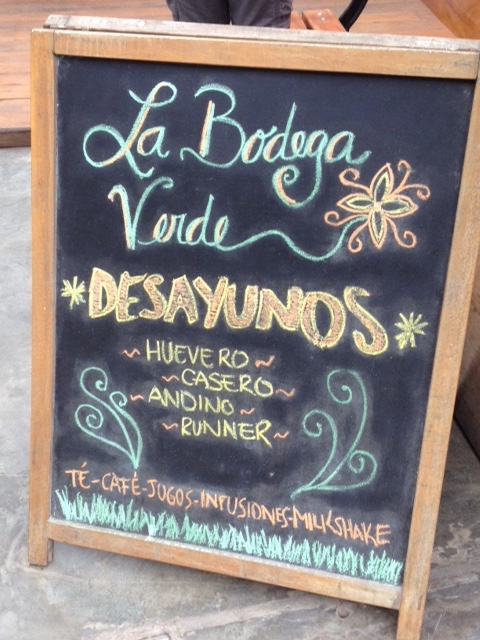 La Bodega
Verde
DESAYUNOS
~ HUEVERO ~
~ CASERO ~
~ ANDINO ~
~ RUNNER ~
TÉ-CAFÉ-JUGOS-INFUSIONES-MILKSHAKE